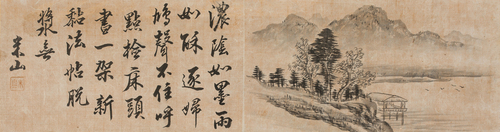 濃陰如墨雨
如酥逐婦
鳩聲不住呼
點撿床頭
書一架新
黏法帖脫
漿無
東山